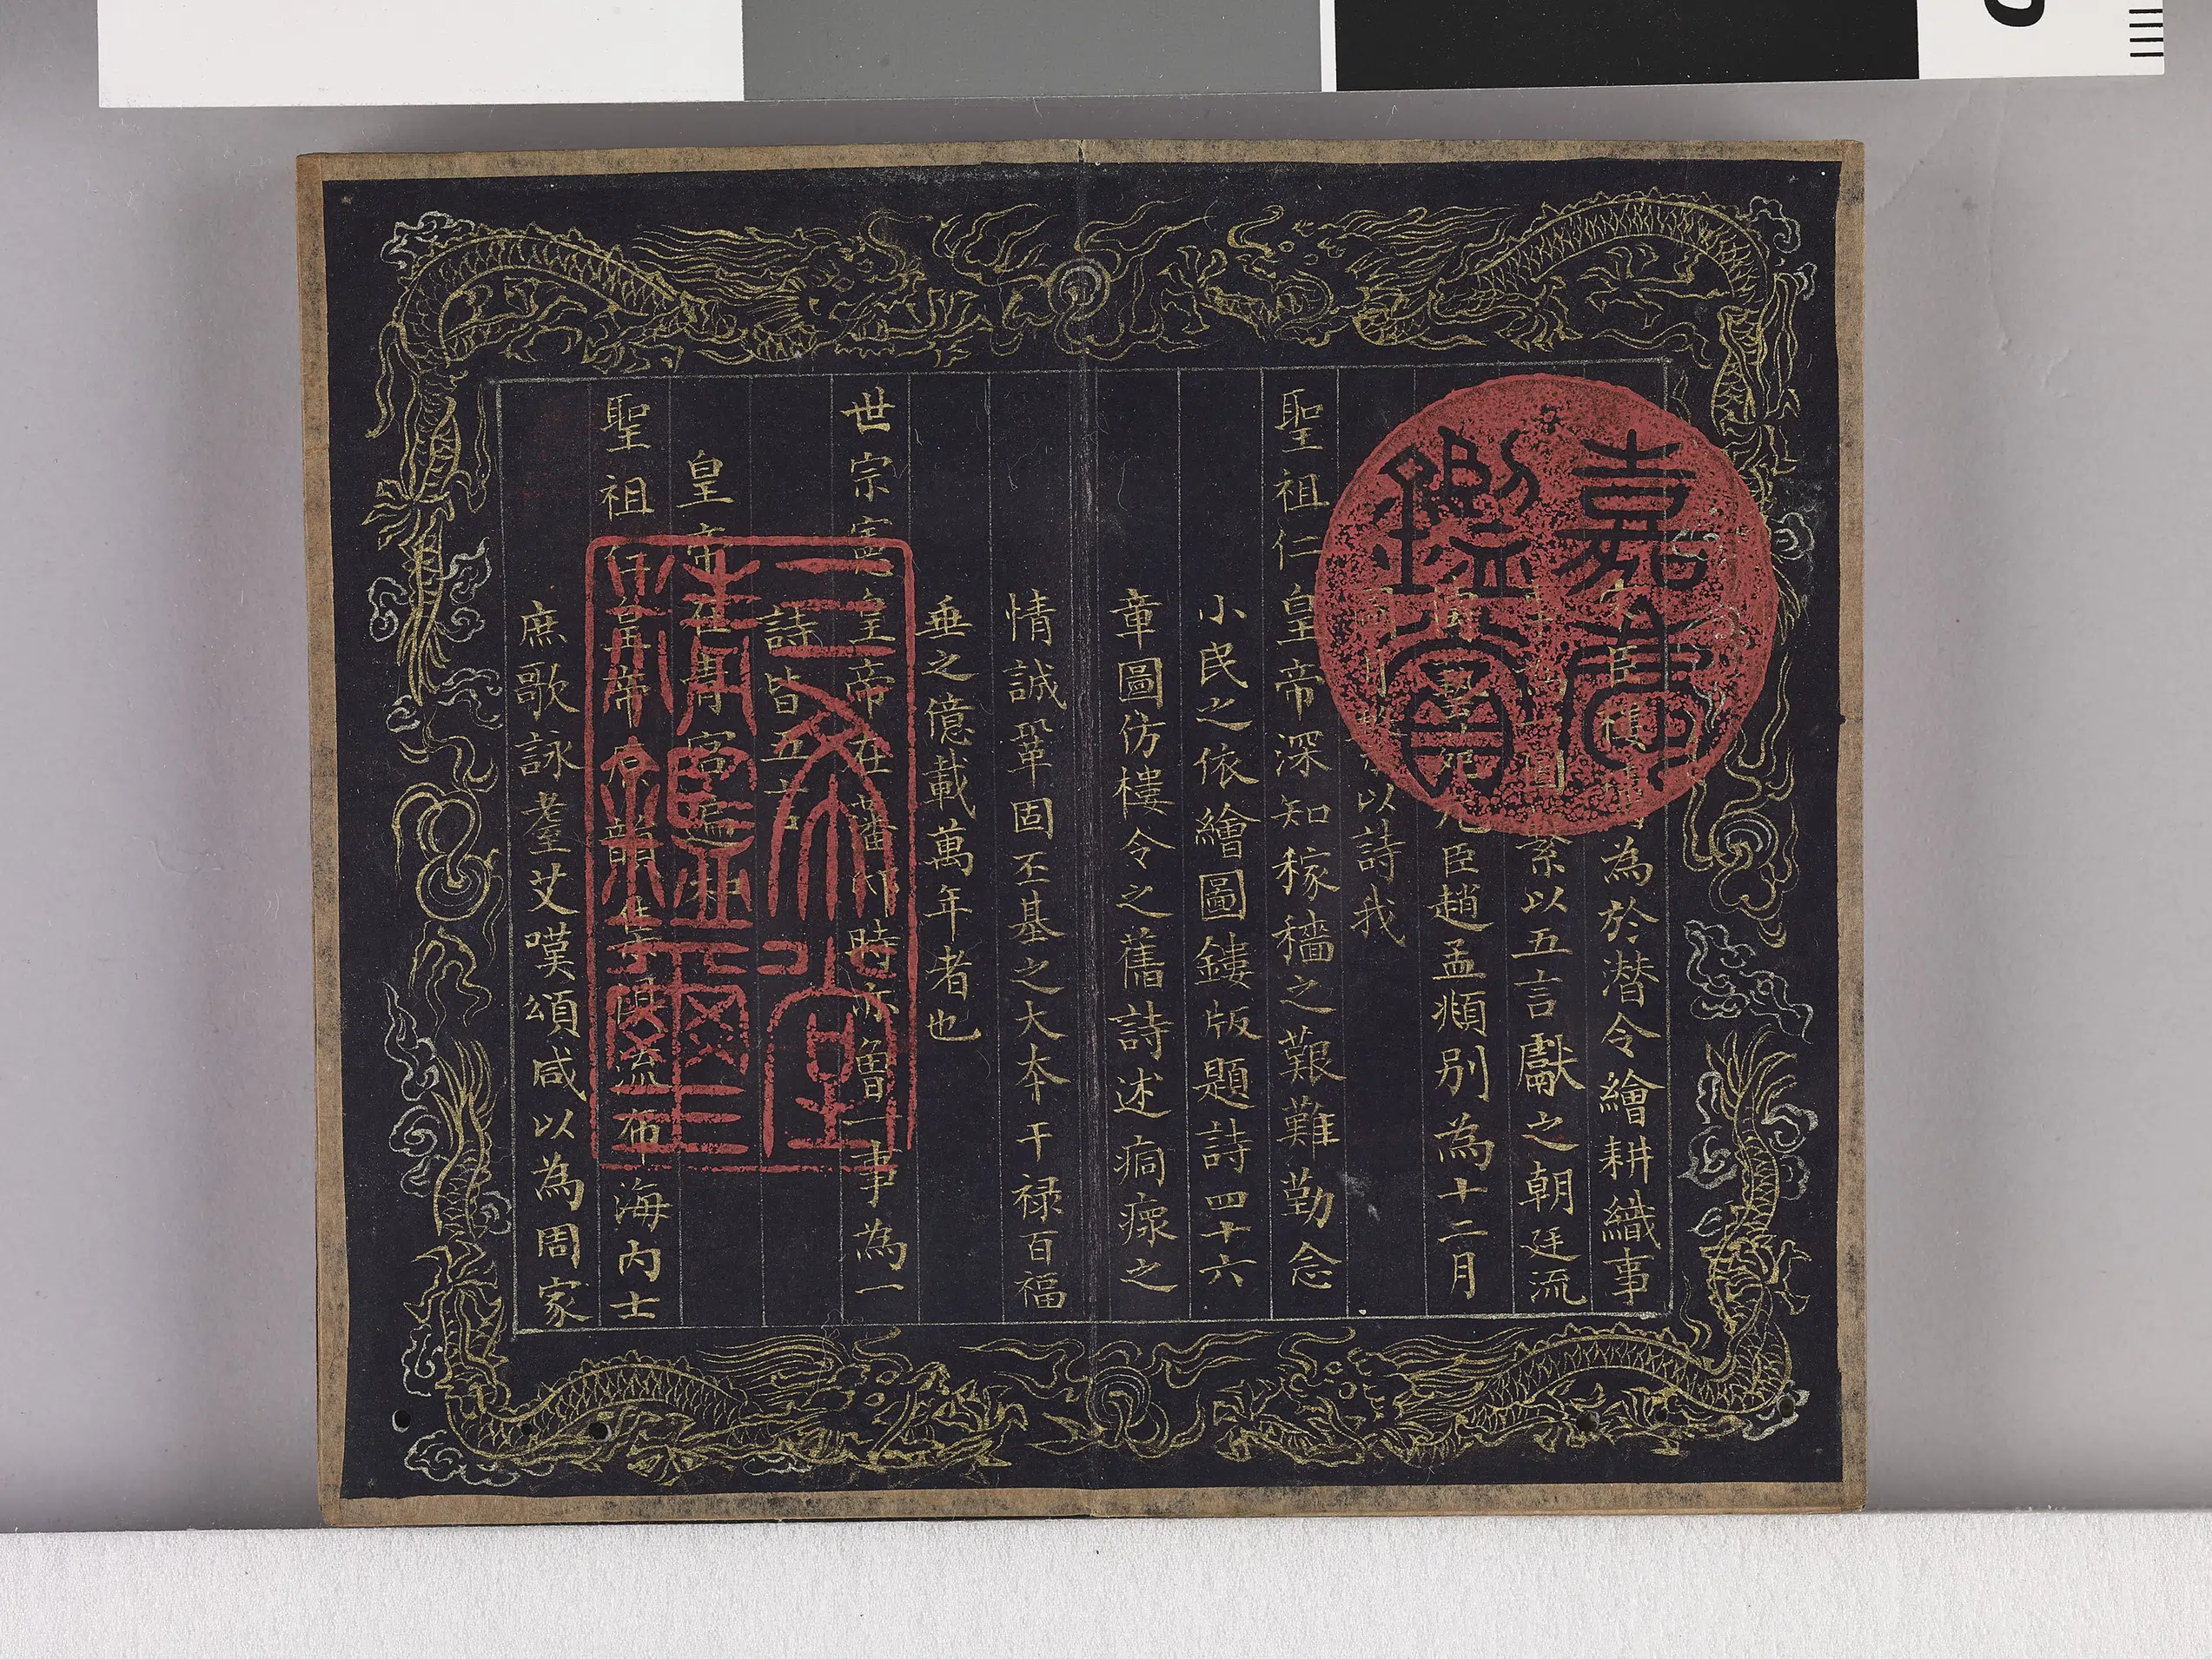 宋臣樓璹為於潛令繪耕織事
圖繫以五言獻之朝廷流
元臣趙孟頫別為十二月
以詩我
聖祖仁皇帝深知稼穡之艱難勤念
小民之依繪圖鏤版題詩四十六
章圖仿樓令之舊詩述痌瘝之
情誠鞏固丕基之大本干祿百福
垂之億載萬年者也
世宗憲皇帝在藩邸時亦魯一事為一
詩皆五言
皇帝在青宮
聖祖仁皇帝 流布海內士
庶歌詠耋艾嘆頌咸以為周家
嘉慶鑑賞
三希堂精鑑璽